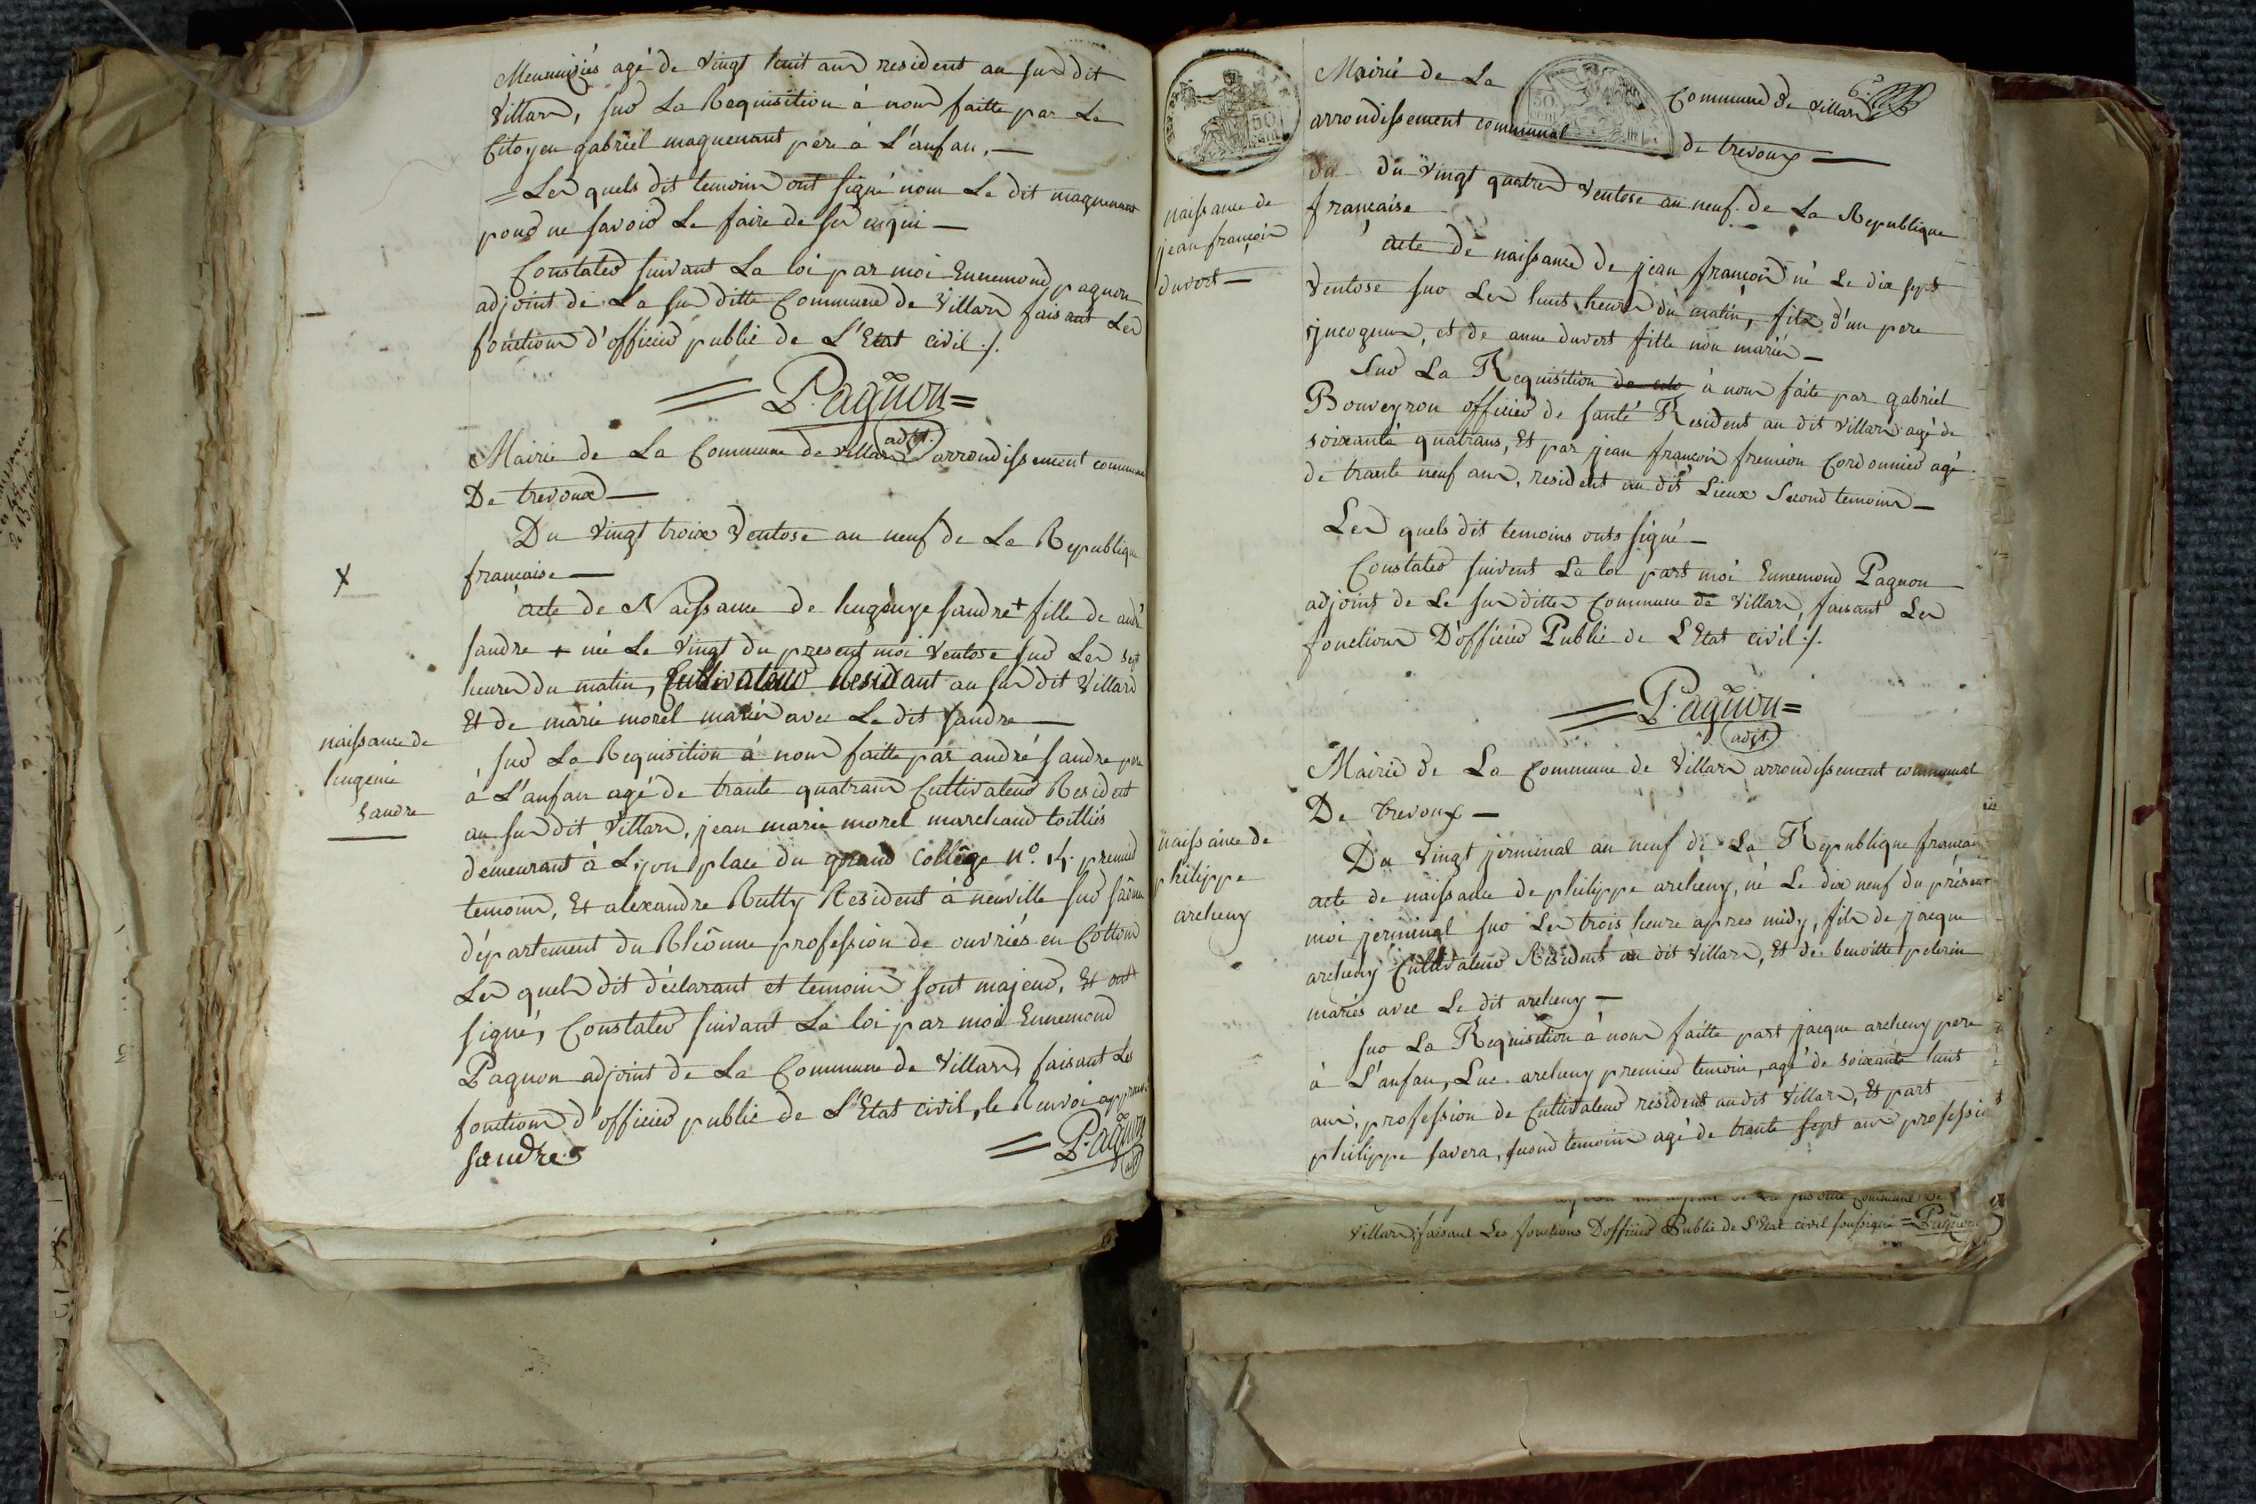 Menuiziés agé de vingt huit ans resident au sus dit
Villars, sur La Requisition à nous faitte par Le
Citoyen gabriël maguenant pere à L'anfan. —
= Les quels dit temoins ont signé non Le dit maguenant
pour ne savoir Le faire de ses enquis —
Constater suivant La loi par moi Ennemond pagnon
adjoint de La sus ditte Commune de Villars faisant Les
fonctions d'officier public de L'Etat civil ./.
= P. agnon =
adjt.
Mairie de La Commune de Villars arrondissement communal
De trevoux —
Du Vingt troix Ventose an neuf de La Republique
française —
X
acte de Naissance de hugenye sandre + fille de andré
sandre + née Le Vingt du present moi Ventose sur Les sept
heures du matin, Cultivateur Residant au sus dit Villars
Et de marie morel mariés avec Le dit sandre —
naissance de
hugenie
Sandre
sur La Requisition à nous faitte par andré sandre pere
à L'anfan agé de trante quatrans Cultivateur Resident
au sus dit Villars, jean marie morel marchand toilliés
demeurant à Lyon place du grand collège n°. 4. premier
temoins, Et alexandre Rutty Resident à neuville sur saône
département du Rhônne profession de ouvriés en Cotton
Les quels dit déclarant et temoins sont majeur, Et ont
signé, Constater suivant La loi par moi Ennemond
Pagnon adjoint de La Commune de Villars, faisant Les
fonctions d'officier public de L'Etat civil, le Renvoi approuvé
sandre
= P. agnon
6.
Mairie de La Commune de Villars
arrondissement communal de trevoux —
du du vingt quatres Ventose an neuf. de La Republique
française
naissance de
jean françois
duvert —
acte de naissance de jean françois né Le dix sept
Ventose sur Les huit heures du matin, fils d'un pere
yncognus, et de anne duvert fille non mariés —
Sur La Requisition à nous faite par gabriël
Bouveyron officier de santé Resident au dit Villars agé de
soixante quatrans, Et par jean françois fremion Cordonnier agé
de trante neuf ans, resident au dit Lieux Second temoins —
Les quels dit temoins onts signé —
Constater suivent La loi part moi Ennemond Pagnon
adjoint de Le sus dittes Commune de Villars, faisant Les
fonctions D'officier Public de L'Etat civil ./.
= P. agnon =
adjt.
Mairie de La Commune de Villars arrondissement communal
De trevoux —
naissance de
philippe
archeny
Du vingt jerminal an neuf de La Republique française
acte de naissance de philippe archeny, né Le dix neuf du présent
moi jerminal sur Les trois heure apres midy, fils de jacque
archeny Cultivateur Résident au dit Villars, Et de benoitte pelerin
mariés avec Le dit archeny —
sur La Requisition à nous faitte part jacque archeny pere
à L'anfan, Luc archeny premier temoin, agé de soixante huit
ans, profession de Cultivateur resident audit Villars, Et part
philippe favera, second temoins agé de trante sept ans profession
Villars, faisant Les fonctions D'officier Public de L'Etat civil soussigné = Pagnon